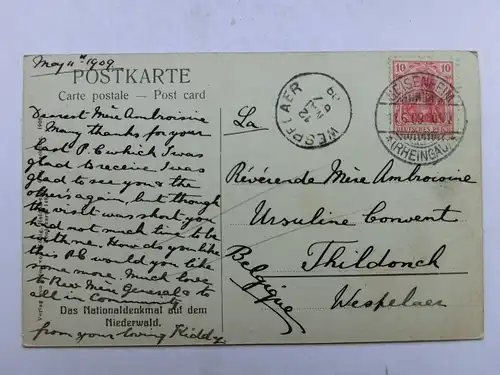 May 11th 1909
POSTKARTE
Carte postale — Post card
Dearest Mère Ambroisine
Many thanks for your
last P.C which I was
glad to receive I was
glad to see you & the
others again, but though
the visit was short you
had not much time to be
with me. How do you like
this P.C would you like
some more. Much love
to Rev Mère General & to
all in Community
from your loving Kiddy
Das Nationaldenkmal auf dem
Niederwald.
WESPELAER
10 10
DEUTSCHES REICH
GEISENHEIM
(RHEINGAU)
La
Révérende Mère Ambroisine
Ursuline Convent
Thildonck
Wespelaer
Belgique